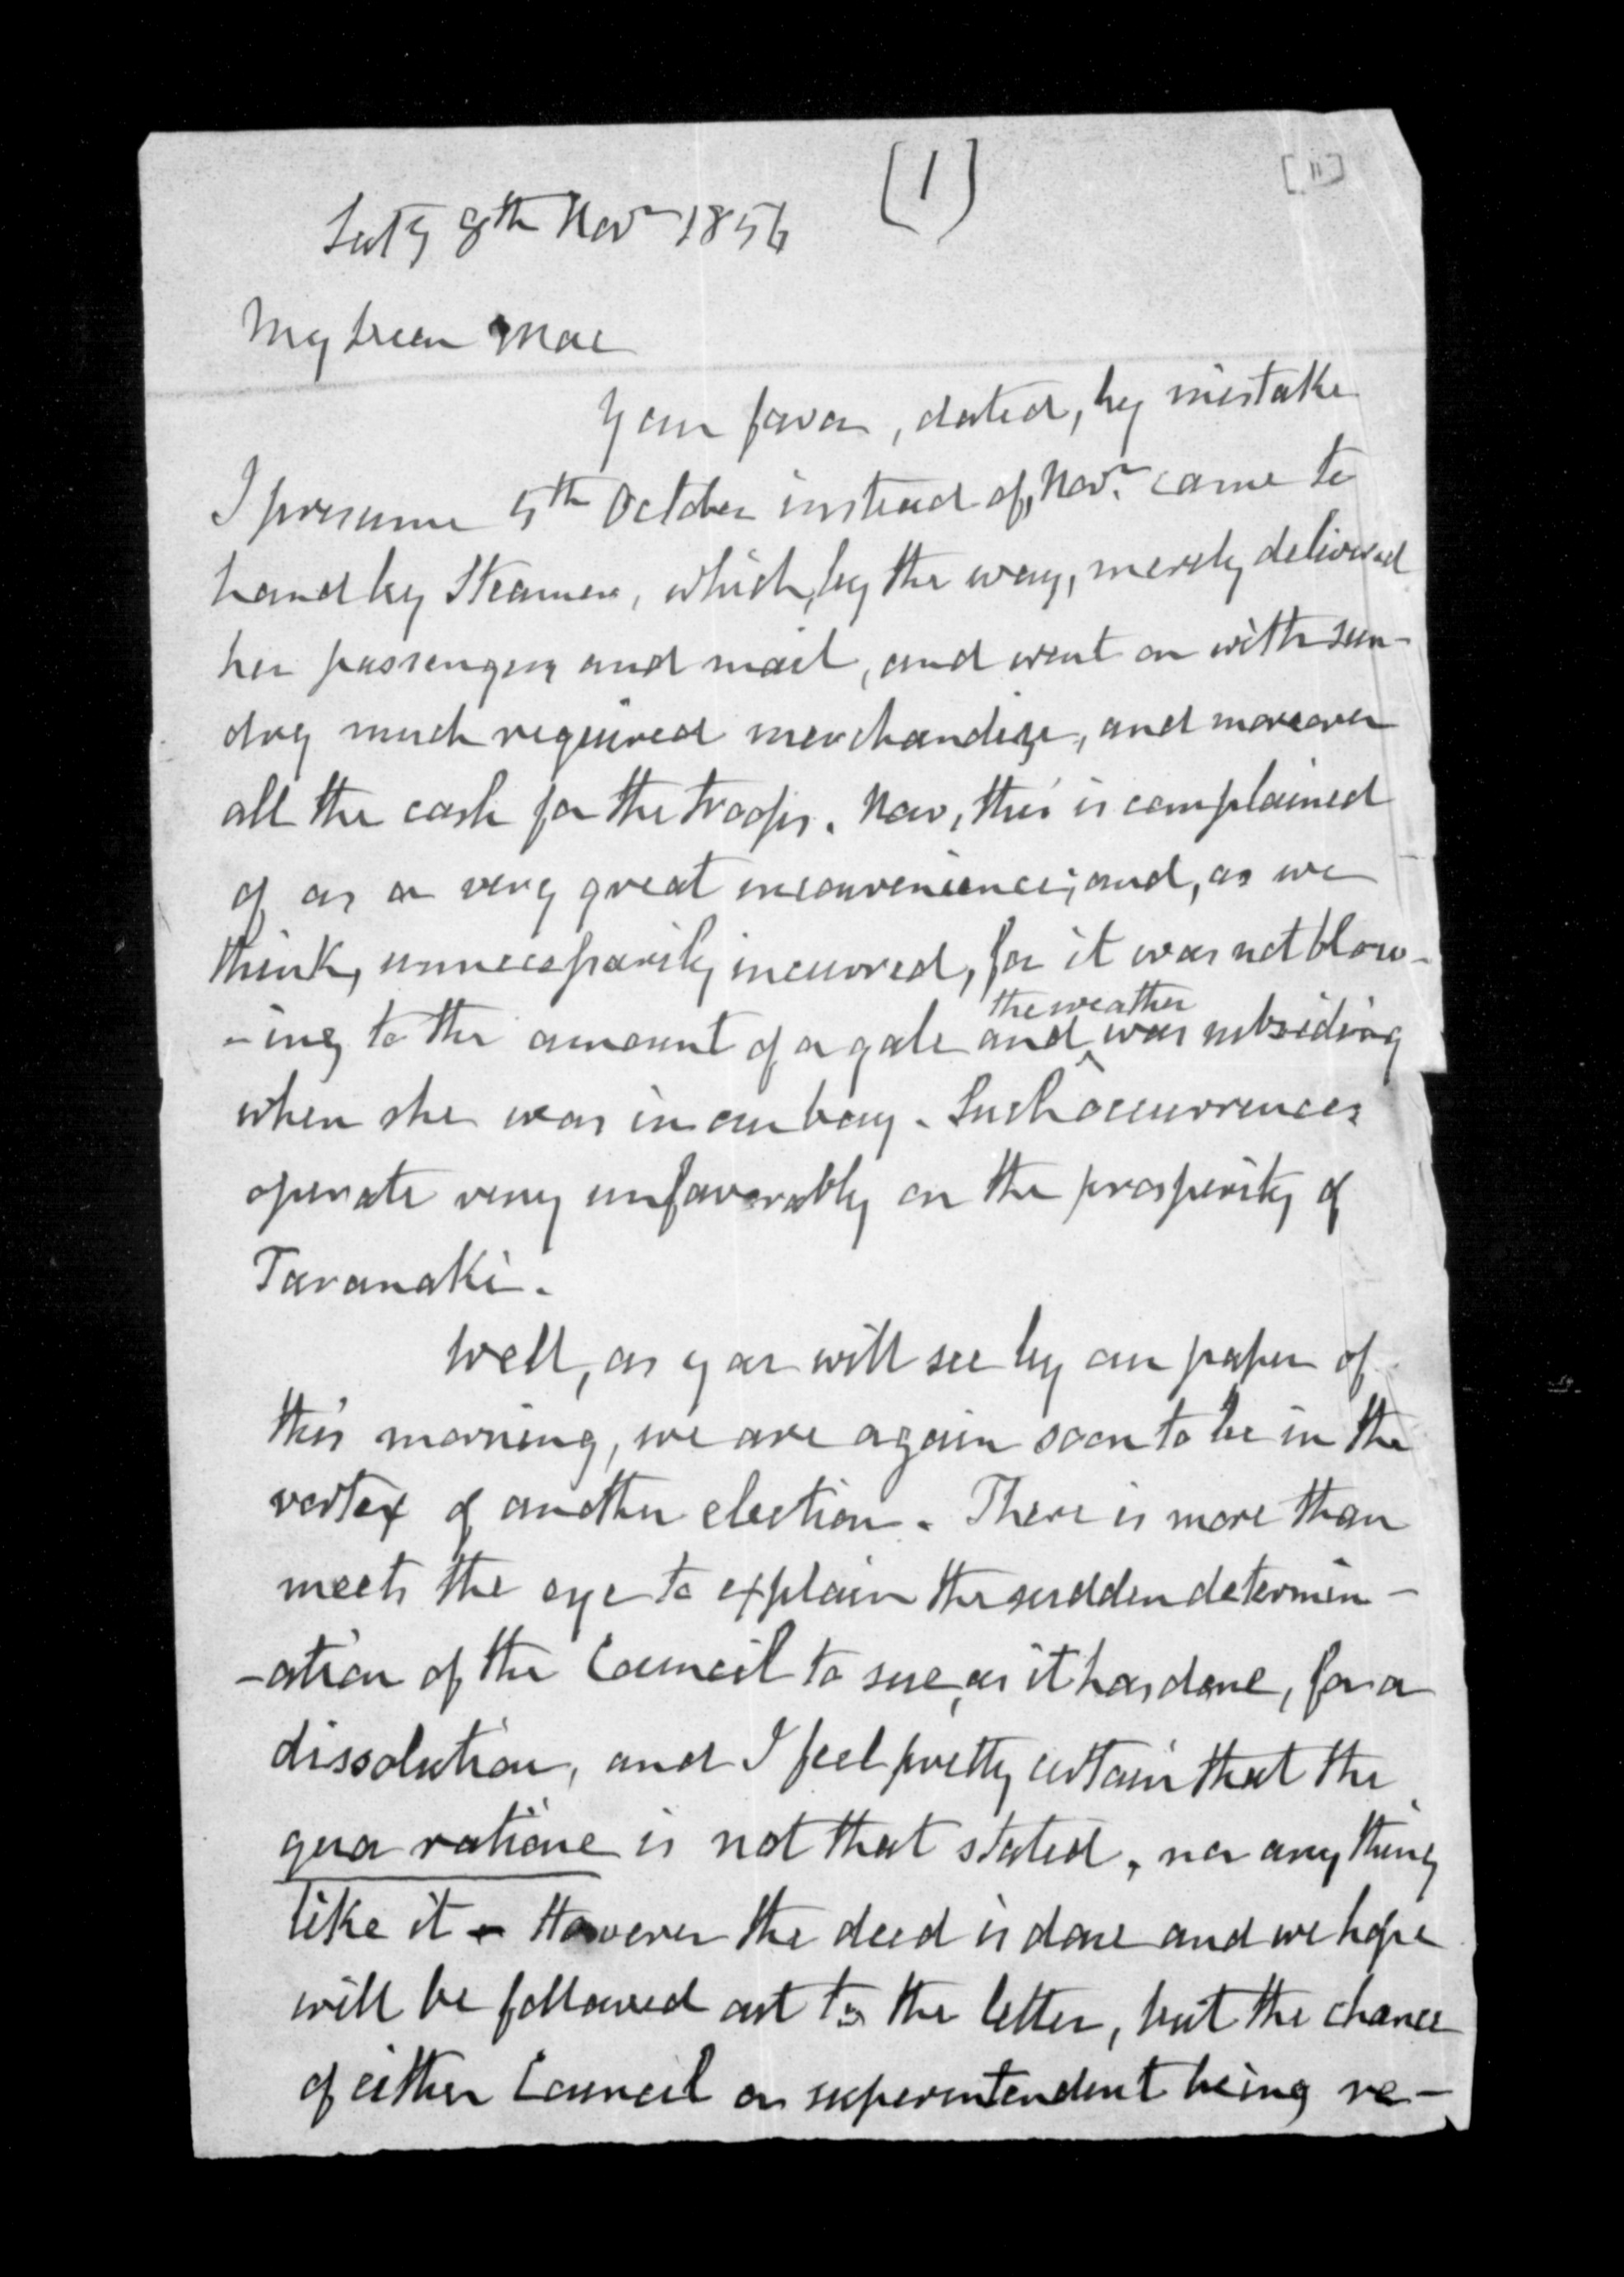 (1)
[11]
Saty 8th Novr 1856
My Dear Mac
Your favor, dated, by mistake
I presume 5th October instead of, Novr. came to
hand by Steamer, which, by the way, merely delivered
her passengers and mail, and went on with sun-
dry much required merchandize, and moreover
all the cash for the troops. Now, this is complained
of as a very great inconvenience; and, as we
think, unnecessarily incurred, for it was not blow-
-ing to the amount of a gale and ^ the weather was subsiding
when she was in our bay. Such occurrences
operate very unfavorably on the prosperity of
Taranaki.
Well, as you will see by our paper of
this morning, we are again soon to be in the
vortex of another election. There is more than
meets the eye to explain the sudden determin-
-ation of the Council to sue, as it has done, for a
dissolution, and I feel pretty certain that the
qua ratione is not that stated, nor any thing
like it - However the deed is done and we hope
will be followed out to the letter, but the chance
of either Council or superintendent being re-